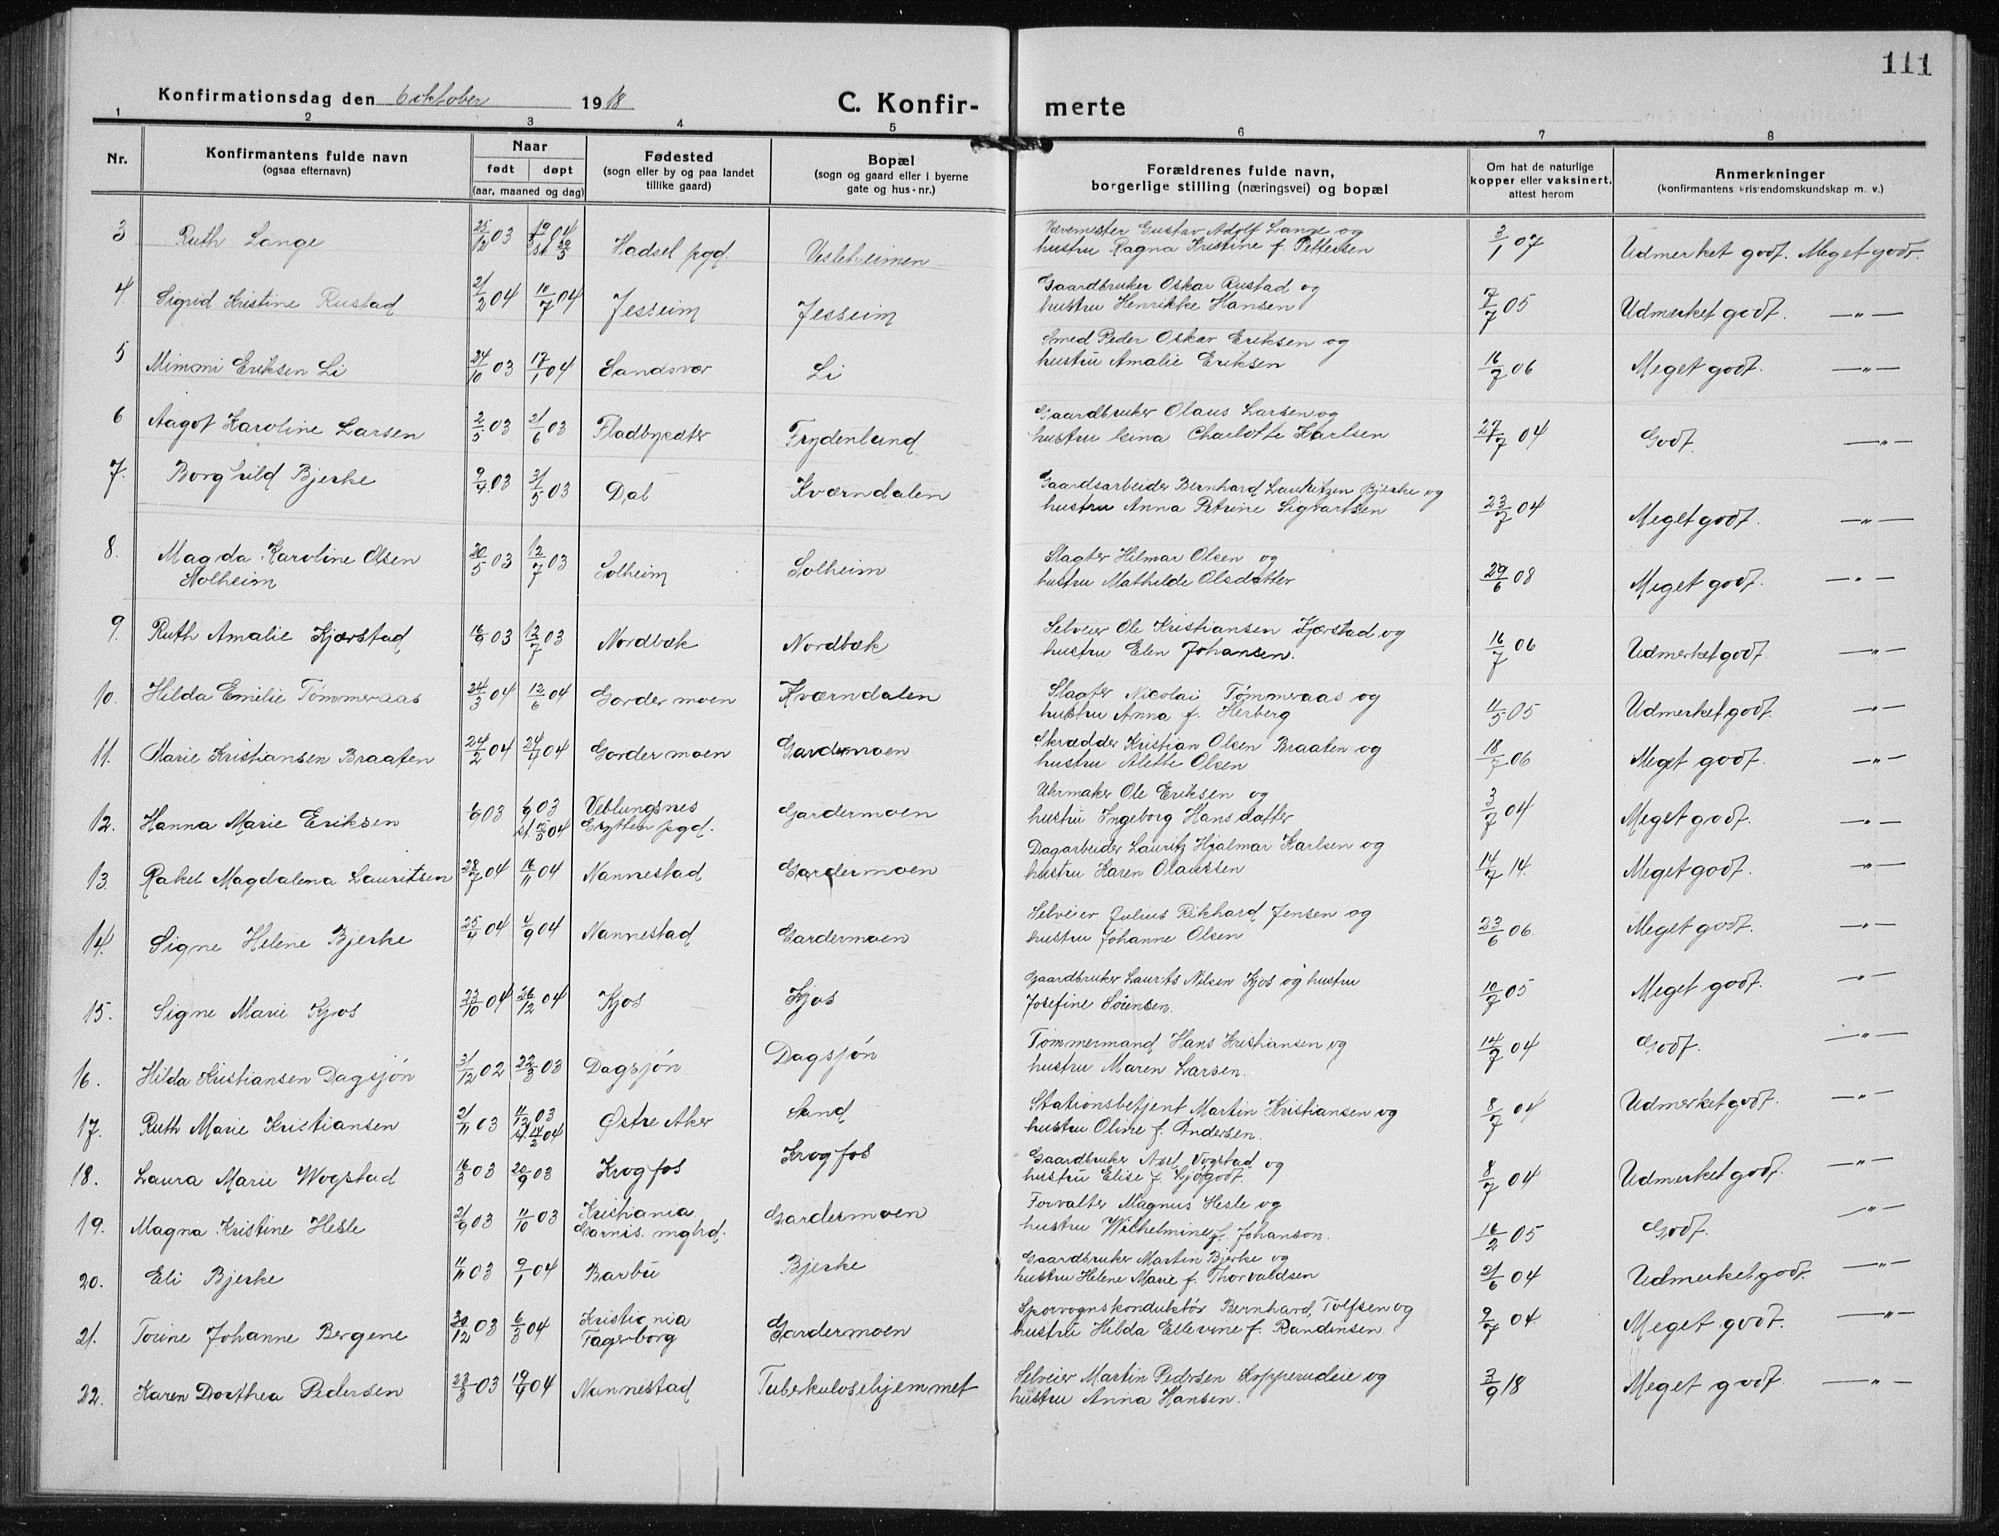 111
Konfirmationsdag den 6 oktober 1918 C. Konfir- merte
1 2 3 4 5 6 7 8
Nr. Konfirmantens fulde navn (ogsaa efternavn) Naar født døpt (aar, maaned og dag) Fødested (sogn eller by og paa landet tillike gaard) Bopæl (sogn og gaard eller i byerne gate og hus-nr.) Forældrenes fulde navn, borgerlige stilling (næringsvei) og bopæl Om hat de naturlige kopper eller vaksinert, attest herom Anmerkninger (konfirmantens kristendomskundskap m. v.)
3 Ruth Lange 25/12 03 Hadsel pgd. Vesleheimen Vævemester Gustav Adolf Lange og
hustru Ragna Kristine f. Pettersen 3/1 07 Udmerket godt. Meget godt.
4. Sigrid Kristine Rustad 21/2 04 10/7 04 Jesseim Jesseim Gaardbruker Oskar Rustad og
hustru Henrikke Hansen 7/7 05 Udmerket godt. —"—
5 Mimmi Eriksen Li 24/10 03 17/1 04 Sandsvær Li Smed Peder Oskar Eriksen og
hustru Amalie Eriksen 16/7 06 Meget godt. —"—
6 Aagot Karoline Larsen 2/5 03 21/6 03 Fladbysæter Frydenlund Gaardbruker Olaus Larsen og
hustru Charlotte Karlsen 27/7 04 Godt. —"—
7. Borghild Bjerke 9/4 03 31/5 03 Dal Kværndalen Gaardsarbeider Bernhard Lauritzen Bjerke og
hustru Anna Petrine Sigvartsen 23/7 04 Meget godt. —"—
8. Magda Karoline Olsen 20/5 03 12/7 03 Solheim Solheim Slagter Hilmar Olsen og
Solheim hustru Mathilde Olsdatter 29/6 08 Meget godt. —"—
9. Ruth Amalie Kjærstad 16/9 03 12/7 03 Nordbæk Nordbæk Selveier Ole Kristiansen Kjærstad og
hustru Elen Johansen. 16/7 06 Udmerket godt. —"—
10. Hilda Emilie Tømmeraas 24/3 04 12/6 04 Gardermoen Kværndalen Slagter Nicolai Tømmeraas og
hustru Anna f. Herberg 11/5 05 Udmerket godt. —"—
11. Marie Kristiansen Braaten 24/2 04 24/4 04 Gardermoen Gardermoen Skrædder Kristian Olsen Braaten og
hustru Alette Olsen 18/7 06 Meget godt. —"—
12. Hanna Marie Eriksen 03 03 Veblungsnes Gardermoen Uhrmaker Ole Eriksen og
Grytten pgd. hustru Ingeborg Hansdatter 3/7 04 Meget godt. —"—
13. Rakel Magdalena Lauritsen 28/7 04 16/11 04 Nannestad Gardermoen Dagarbeider Lauritz Hjalmar Karlsen og
hustru Karen Olaussen 14/7 14. Meget godt. —"—
14. Signe Helene Bjerke 25/4 04 4/9 04 Nannestad Gardermoen Selveier Julius Rikhard Jensen og
hustru Johanne Olsen 23/6 06. Meget godt. —"—
15. Signe Marie Kjos 23/10 04 26/12 04 Kjos Kjos Gaardbruker Laurits Nilsen Kjos og hustru
Josefine Sørensen. 10/7 05 Meget godt. —"—
16. Hilda Kristiansen Dagsjøn 31/12 02 22/3 03 Dagsjøn Dagsjøn Tømmermand Hans Kristiansen og
hustru Maren Larsen. 14/7 04 Godt. —"—
17. Ruth Marie Kristiansen 21/11 03 11/12 03 st. 14/2 04 Østre Aker Sand Stationsbetjent Martin Kristiansen og
hustru Oline f. Andersen. 8/7 04 Udmerket godt. —"—
18. Laura Marie Wogstad 16/3 03 20/9 03 Krogfos Krogfos Gaardbruker Axel Vogstad og
hustru Elise f. 8/7 04 Udmerket godt. —"—
19. Magna Kristine Hesle 21/9 03 11/10 03 Kristiania Gardermoen Forvalter Magnus Hesle og
Garnis. mghd. hustru Wilhelmine f. Johanson. 16/2 05 Godt. —"—
20. Eli Bjerke 11/11 03 9/1 04 Barbu Bjerke Gaardbruker Martin Bjerke og
hustru Helene Marie f. Thorvaldsen 21/6 04 Udmerket godt. —"—
21. Torine Johanne Bergene 30/12 03 6/3 04 Kristiania Gardermoen Sporvognskonduktør Bernhard Tolfsen og
Fagerborg hustru Hilda Ellevine f. Randinsen 9/7 04. Meget godt. —"—
22. Karen Dorthea Pedersen 23/3 03 19/4 04 Nannestad Tuberkulosehjemmet Selveier Martin Pedersen Kopperudeie og
hustru Anna Hansen. 3/9 18 Meget godt. —"—